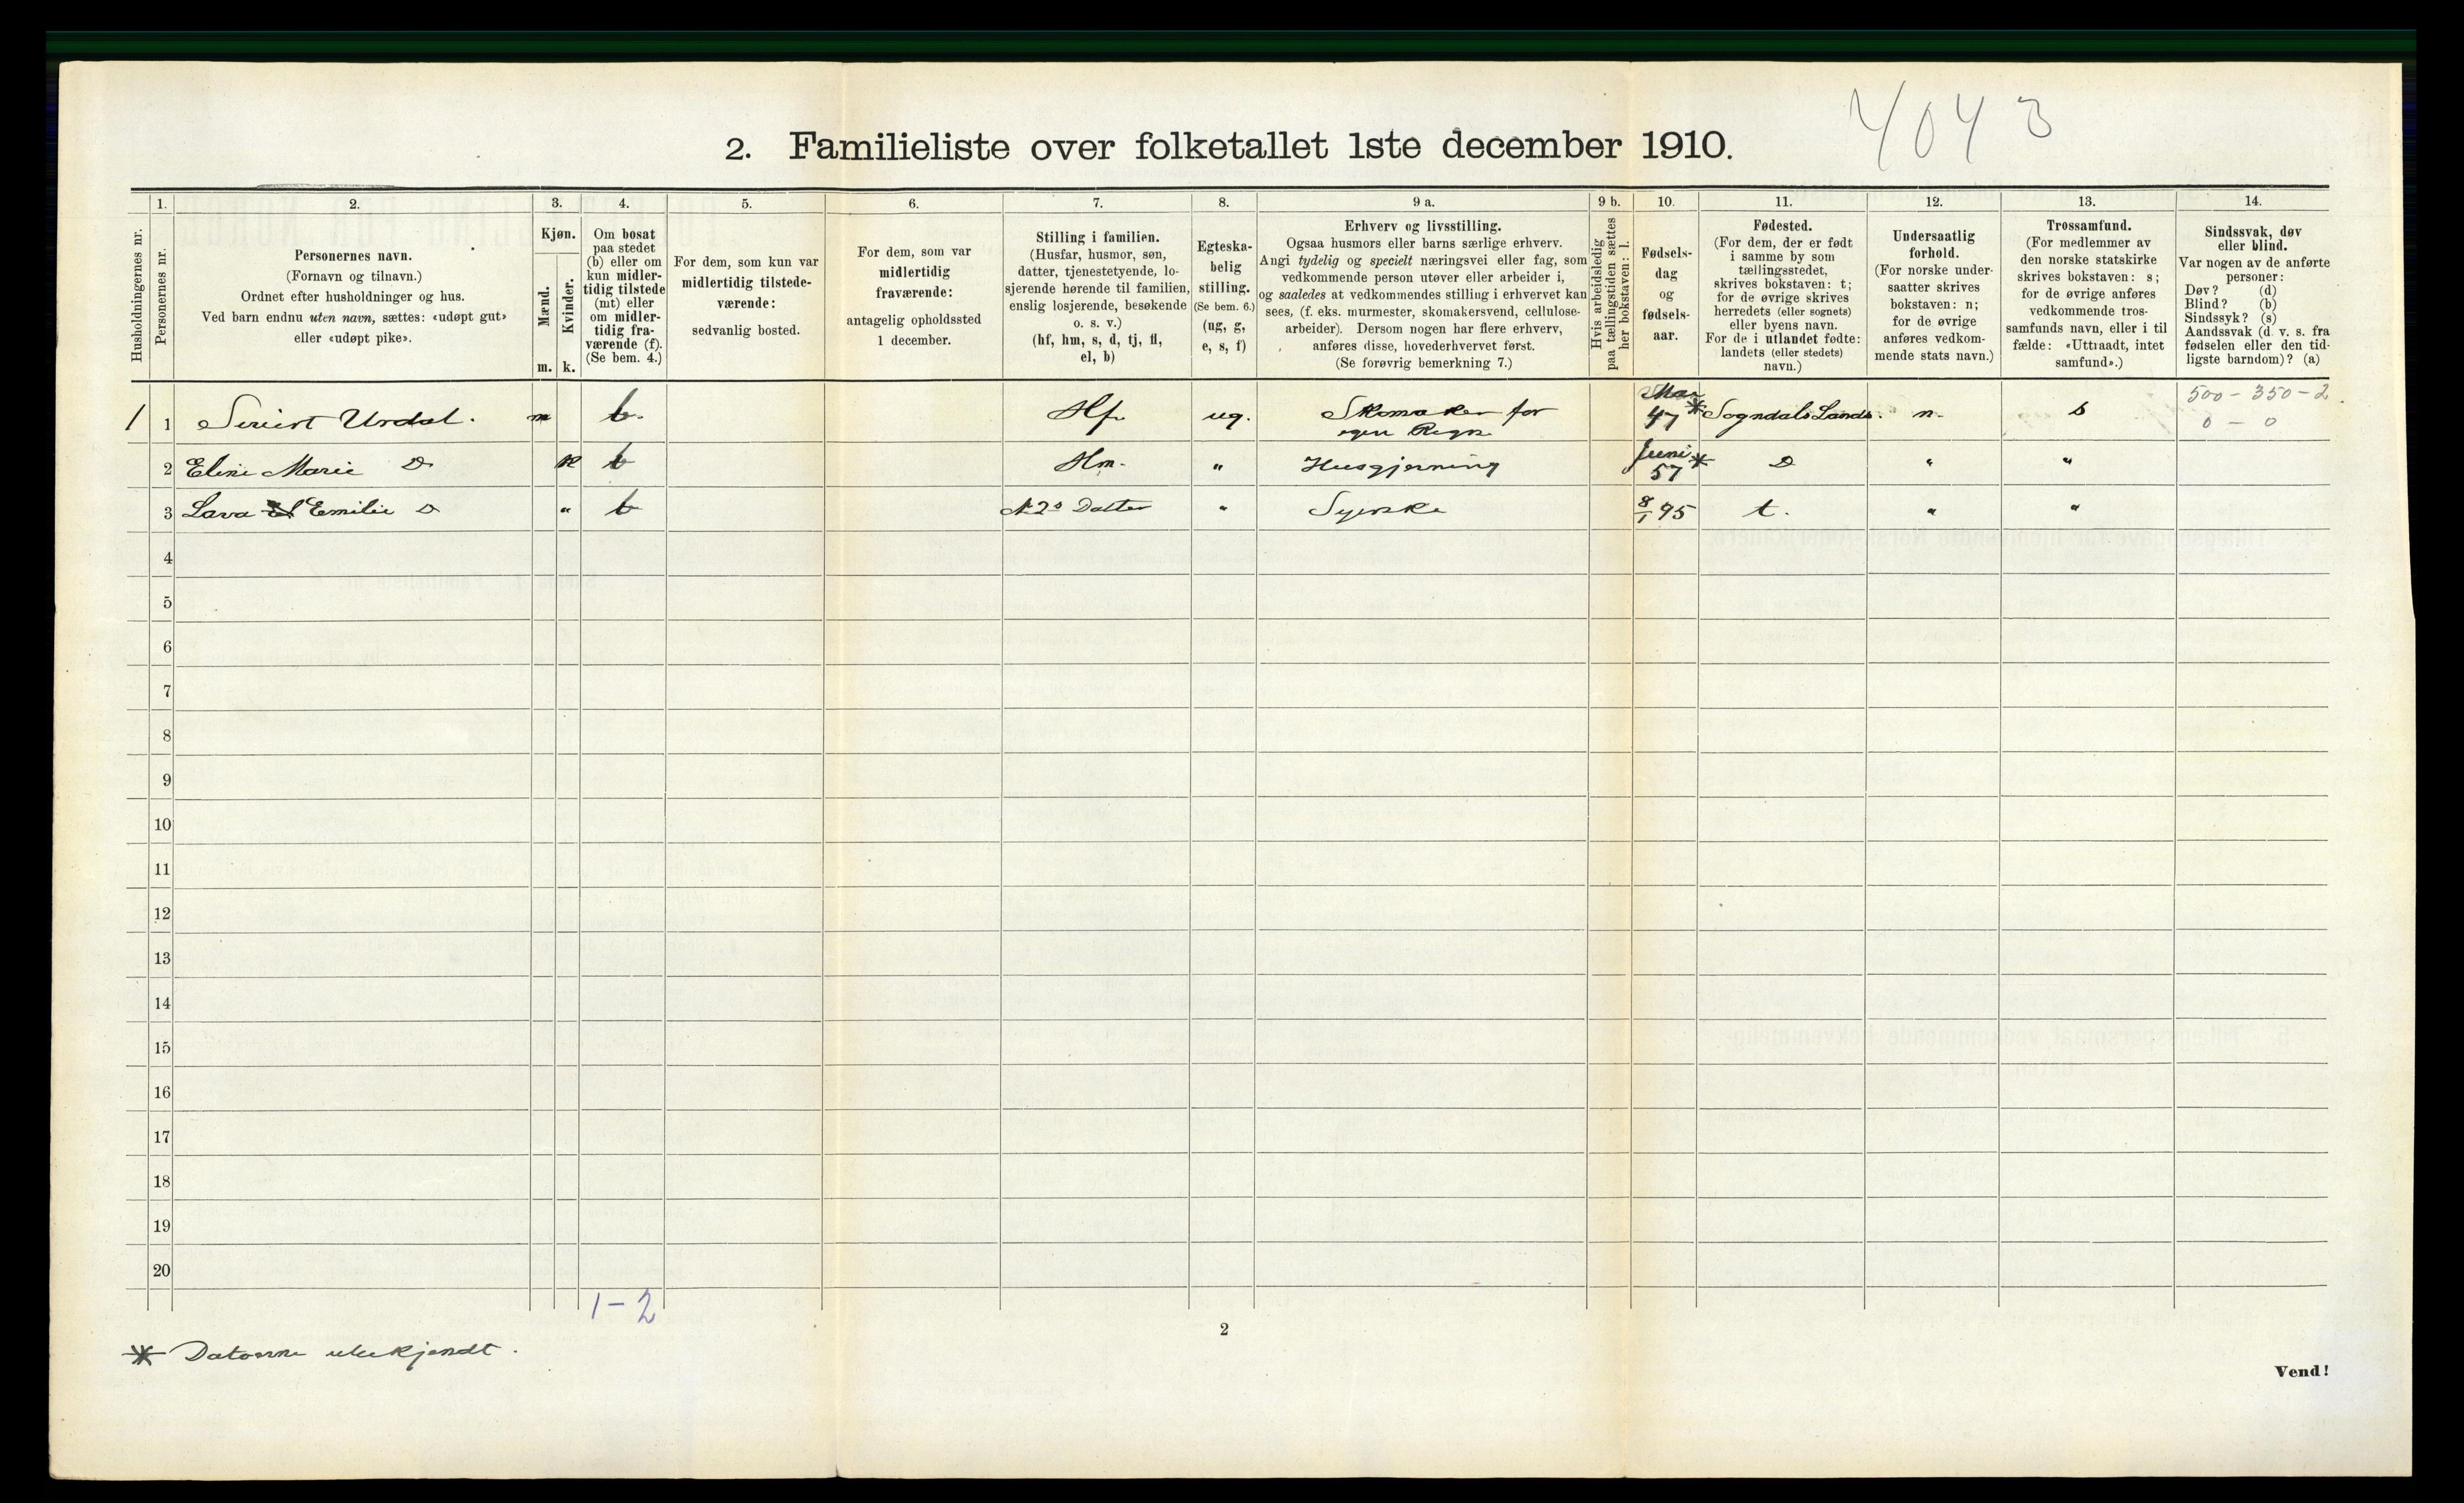 4043
2. Familieliste over folketallet 1ste december 1910.
Husholdningernes nr.
1.
Personernes nr.
2.
Personernes navn.
(Fornavn og tilnavn.)
Ordnet efter husholdninger og hus.
Ved barn endnu uten navn, sættes: «udøpt gut»
eller «udøpt pike».
3.
Kjøn.
Mænd.
Kvinder.
m. k.
4.
Om bosat
paa stedet
(b) eller om
kun midler-
tidig tilstede
(mt) eller
om midler-
tidig fra-
værende (f).
(Se bem. 4.)
5.
For dem, som kun var
midlertidig tilstede-
værende:
sedvanlig bosted.
6.
For dem, som var
midlertidig
fraværende:
antagelig opholdssted
1 december.
7.
Stilling i familien.
(Husfar, husmor, søn,
datter, tjenestetyende, lo-
sjerende hørende til familien,
enslig losjerende, besøkende
o. s. v.)
(hf, hm, s, d, tj, fl,
el, b)
8.
Egteska-
belig
stilling.
(Se bem. 6.)
(ug, g,
e, s, f)
9 a.
Erhverv og livsstilling.
Ogsaa husmors eller barns særlige erhverv.
Angi tydelig og specielt næringsvei eller fag, som
vedkommende person utøver eller arbeider i,
og saaledes at vedkommendes stilling i erhvervet kan
sees, (f. eks. murmester, skomakersvend, cellulose-
arbeider). Dersom nogen har flere erhverv,
anføres disse, hovederhvervet først.
(Se forøvrig bemerkning 7.)
9 b.
Hvis arbeidsledig
paa tællingstiden sættes
her bokstaven: l.
10.
Fødsels-
dag
og
fødsels-
aar.
11.
Fødested.
(For dem, der er født
i samme by som
tællingsstedet,
skrives bokstaven: t;
for de øvrige skrives
herredets (eller sognets)
eller byens navn.
For de i utlandet fødte:
landets (eller stedets)
navn.)
12.
Undersaatlig
forhold.
(For norske under-
saatter skrives
bokstaven: n;
for de øvrige
anføres vedkom-
mende stats navn.)
13.
Trossamfund.
(For medlemmer av
den norske statskirke
skrives bokstaven: s;
for de øvrige anføres
vedkommende tros-
samfunds navn, eller i til
fælde: «Uttraadt, intet
samfund».)
14.
Sindssvak, døv
eller blind.
Var nogen av de anførte
personer:
Døv? (d)
Blind? (b)
Sindssyk? (s)
Aandssvak (d. v. s. fra
fødselen eller den tid-
ligste barndom)? (a)
500 - 350 - 2.
0 - 0
1 1 Urdal. m b. Hf. ug. Skomaker for egen Regn. 47 * Sogndals Lands. n. s
2 Eline Marie D k b Hm. " Husgjerning Juni 57 * D " "
3 Lava Emilie D " b Datter " Syerske 8/1 95 t. " "
4
5
6
7
8
9
10
11
12
13
14
15
16
17
18
19
20
1-2
* Datoerne ubekjendt.
2
Vend!